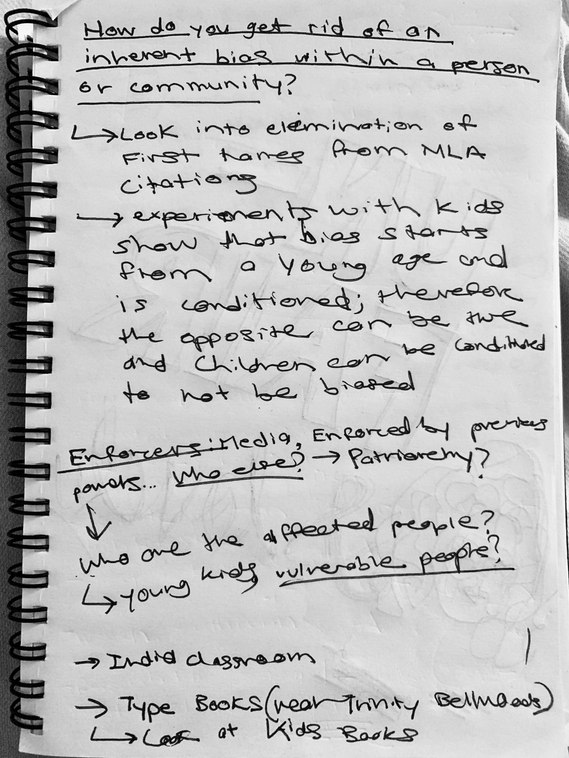 How do you get rid of an
inherent bias within a person
or community?
↳ Look into elemination of
First names from MLA
citations
→ experiments with kids
show that bias starts
from a young age and
is conditioned; therefore
the opposite can be true
and children can be conditioned
to not be biased
Enforcers: Media, Enforced by previous
powers... Who else? → Patriarchy?
↓
Who are the affected people?
↳ young kids, vulnerable people?
→ classroom
→ Type Books (near Trinity Bellwoods)
↳ Look at Kids Books